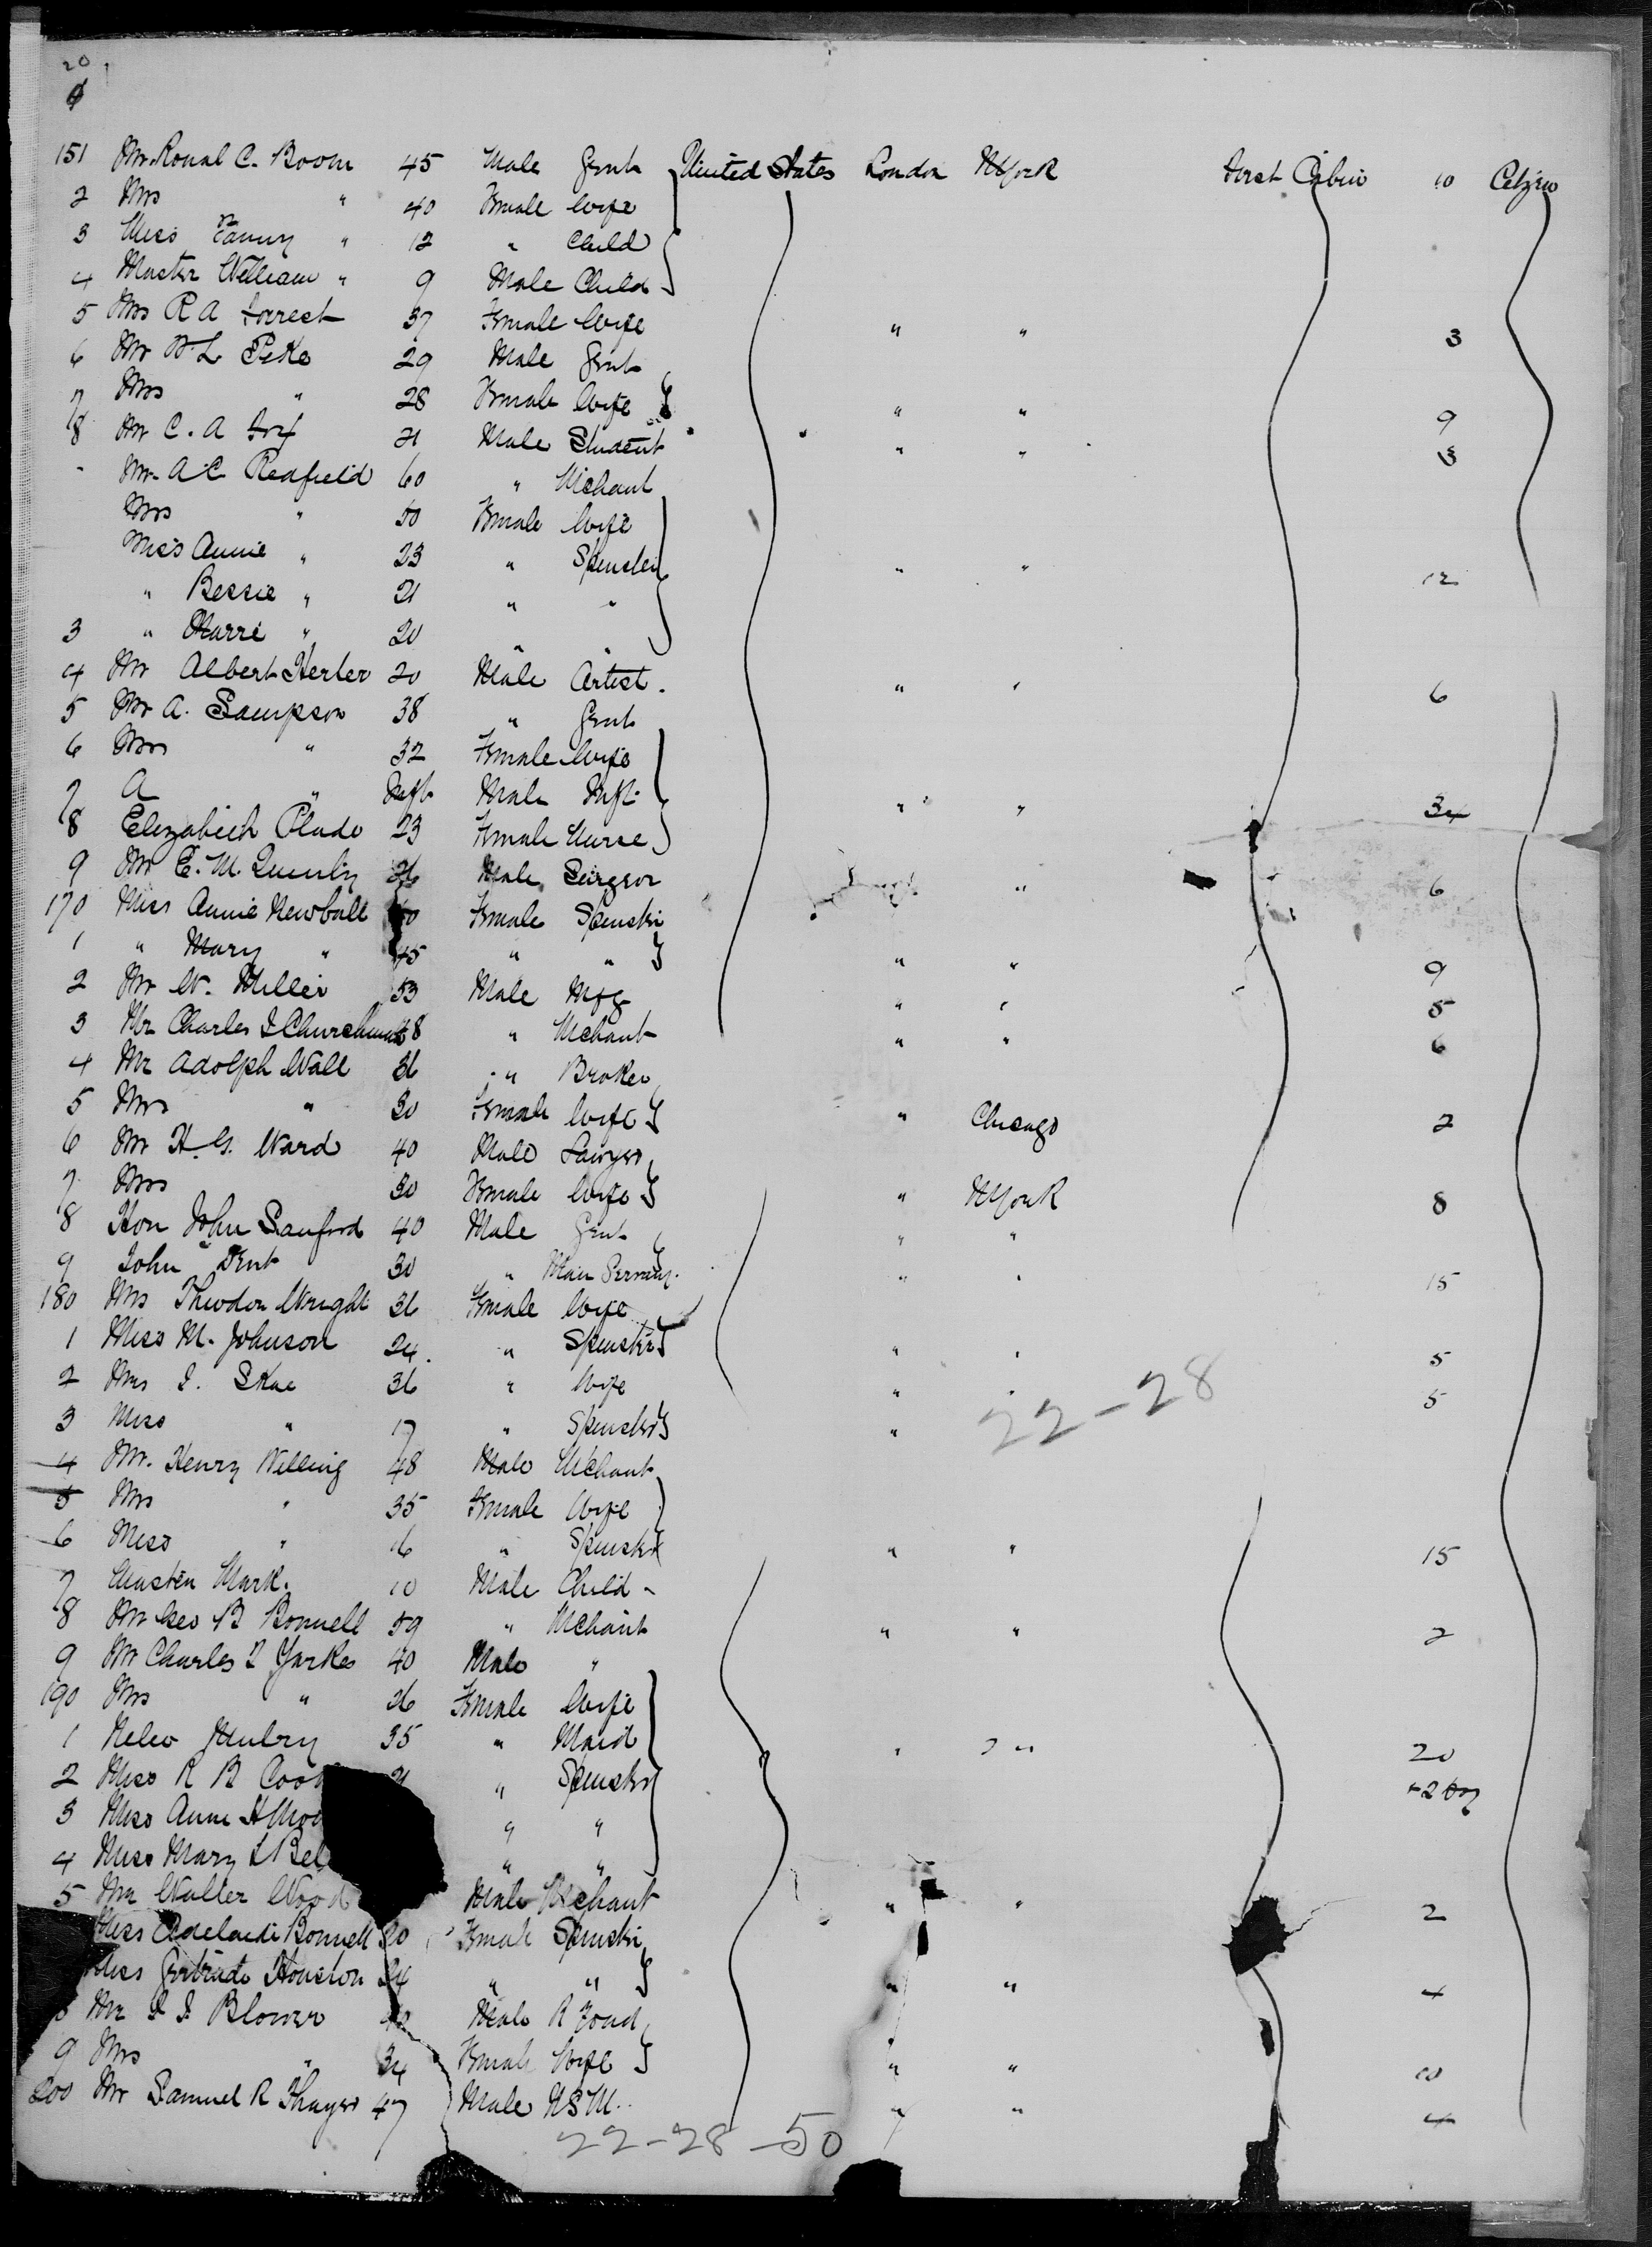 20
151 Mr. Ronal C. Boom 45 Male Gent United States London NYork First Cabin 10 Citizen
2 Mrs " 40 Female Wife
3 Miss Fanny " 12 " Child
4 Master William " 9 Male Child
5 Mrs R A Forrest 37 Female Wife " " 3
6 Mr W. L Peke 29 Male Gent
7 Mrs " 28 Female Wife " " 9
8 Mr C. A Fox 21 Male Student " "
Mr. A C Redfield 60 " Mchant
Mrs " 50 Female Wife
Miss Annie " 23 " Spinster " " 12
" Bessie " 21 " "
3 " Marri " 20 " "
4 Mr Albert Herter 20 Male Artist. " " 6
5 Mr A. Sampson 38 " Gent
6 Mrs " 32 Female Wife
7 A " Inft Male Inft " " 34
8 Elizabeth Plade 23 Female Nurse
9 Mr E. M. Quimby 26 Male Surgeon " 6
170 Miss Annie Newball Female Spinster
1 " Mary " 45 " " " " 9
2 Mr W. Miller 53 Male Mfg " " 5
3 Mr Charles I Churchman 48 " Mchant " " 6
4 Mr Adolph Wall 36 " Broker
5 Mrs " 30 Female Wife " Chicago 2
6 Mr H. G. Ward 40 Male Lawyer
7 Mrs 30 Female Wife " NYork 8
8 Hon John Sanford 40 Male Gent " "
9 John Dent 30 " Man Servant. " " 15
180 Mrs Theodor Wright 36 Female Wife
1 Miss M. Johnson 24. " Spinster " " 5
2 Mrs I. Skae 36 " Wife " " 5
22-28
3 Miss " 17 " Spinster "
4 Mr. Henry Willing 48 Male Mchant
5 Mrs " 35 Female Wife
6 Miss " 16 " Spinster " " 15
7 Master Mark. 10 Male Child
8 Mr Geo B Bonnell 59 " Mchant " " 2
9 Mr Charles T Yerkes 40 Male "
190 Mrs " 26 Female Wife
1 35 " Maid " " 20
2 Miss R B 21 " Spinster
3 Miss Anne H " "
4 Miss Mary L Bel " "
5 Mr Walter Wood Male Mchant " " 2
Miss Adelaide Bonnell 20 Female Spinster
Miss Gertrude Houston 24 " " " " 4
8 Mr I I Blower Male R Road
9 Mrs " 34 Female Wife " " 10
200 Mr Samuel R Thayer 47 Male USM. " " 4
22-28-50